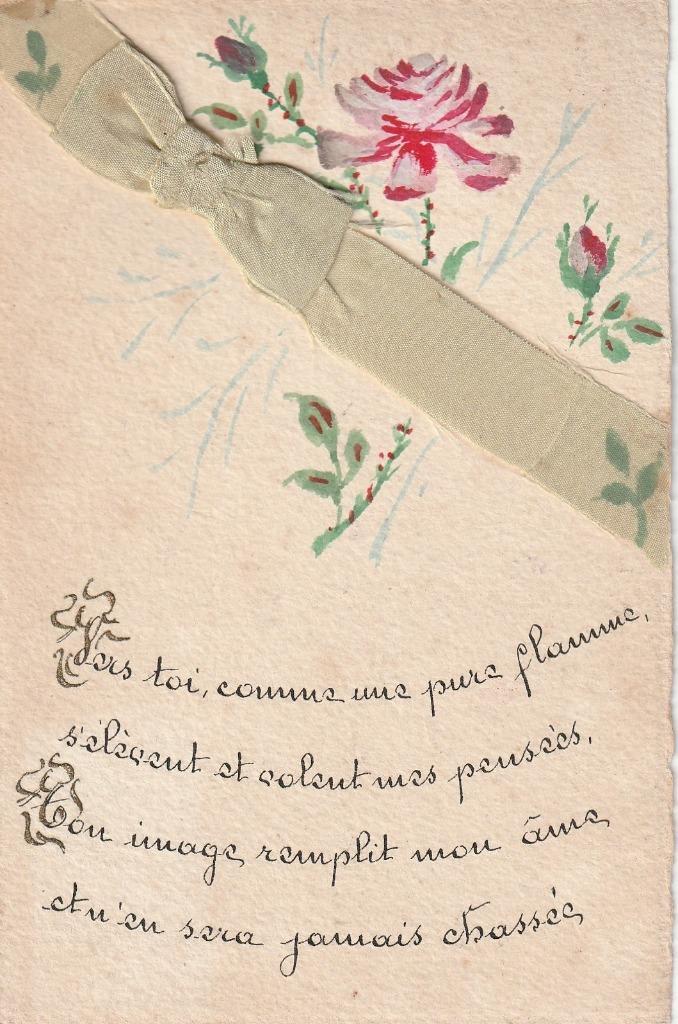 Vers toi, comme une pure flamme,
s'élèvent et volent mes pensées.
Ton image remplit mon âme
et n'en sera jamais chassée